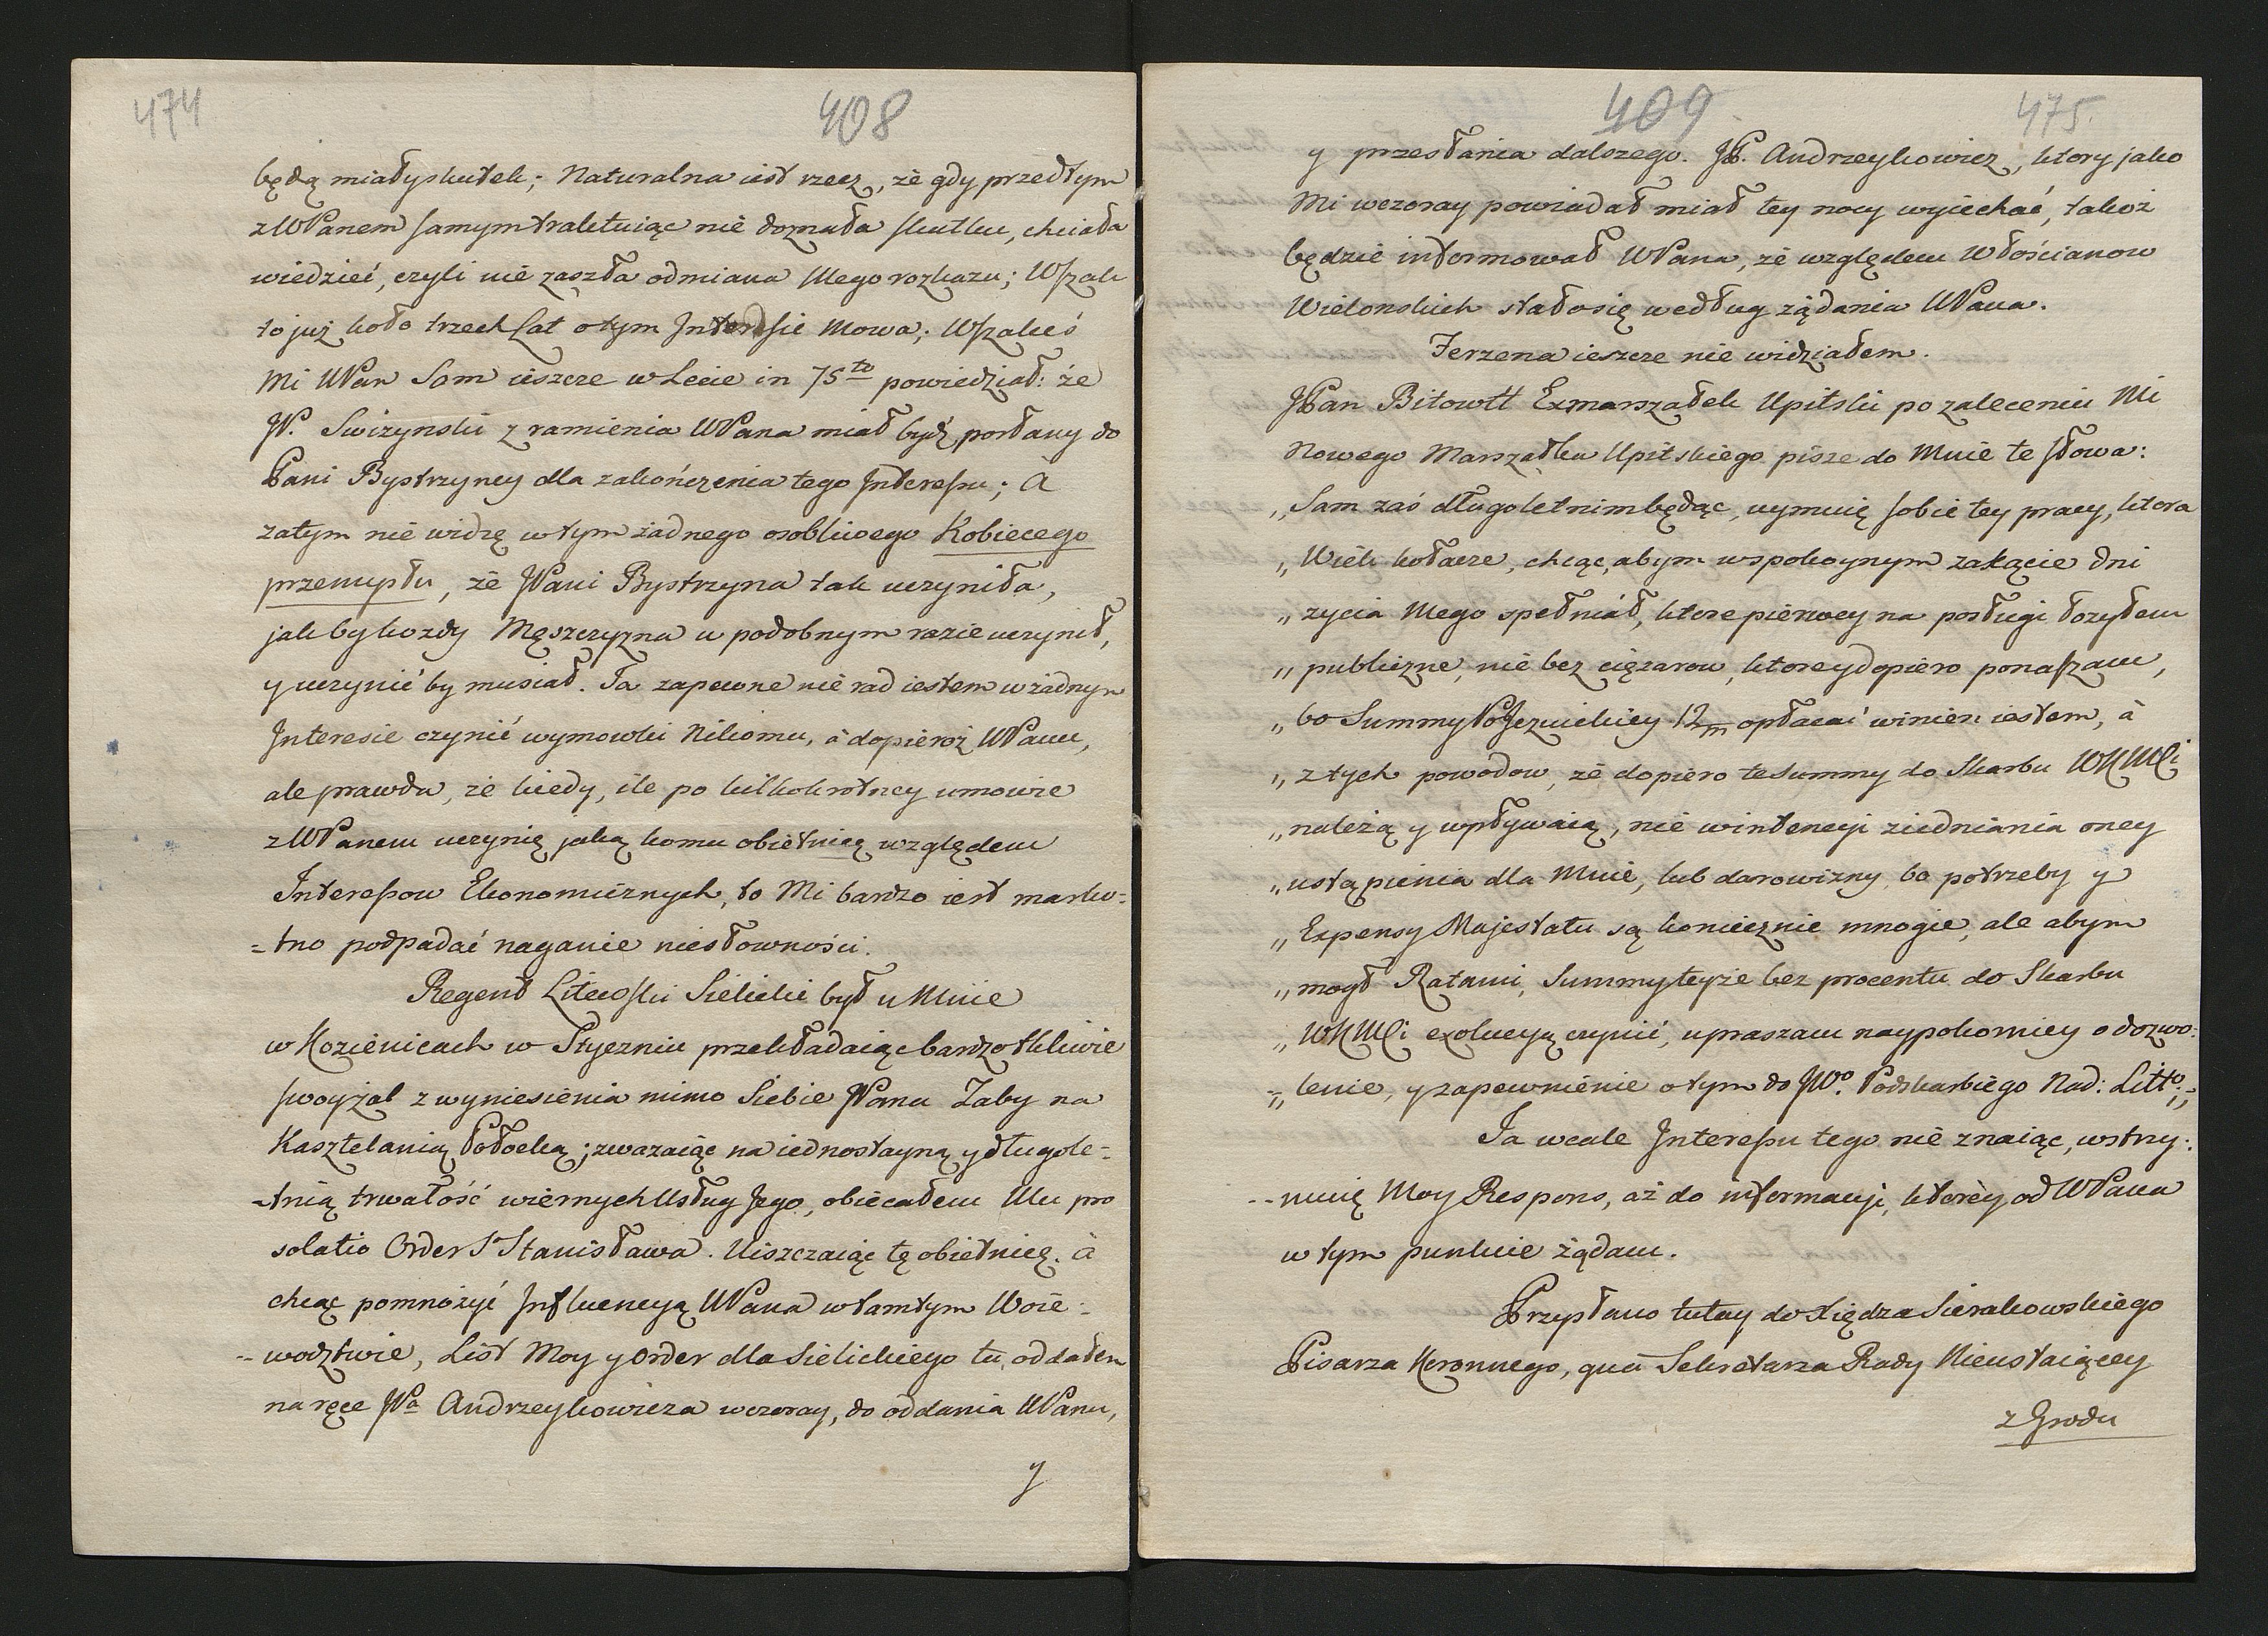 474
408
będą miały skutek; Naturalna iest rzecz, że gdy przedtym
z WPanem samym traktuiąc nie doznała skutku, chciała
wiedzieć, czyli nie zaszła odmiana Mego rozkazu; Wszak
to już koło trzech Lat o tym Interesie mowa; Wszakeś
Mi WPan Sam ieszcze w Lecie in 75to powiedział: że
JP. Swiżynski z ramienia WPana miał bydź posłany do
Pani Bystrzyney dla zakończenia tego Interessu; à
zatym nie widzę w tym żadnego osobliwego Kobiecego
przemysłu, że JPani Bystrzyna tak uczyniła,
jak by kożdy Męszczyzna w podobnym razie uczynił,
y uczynić by musiał. Ja zapewne nie rad iestem w żadnym
Interesie czynić wymowki Nikomu, à dopieroż WPanu,
ale prawda, że kiedy, ile po kilkokrotney umowie
z WPanem uczynię jaką komu obietnicę względem
Interessow Ekonomicznych, to Mi bardzo iest markо=
=tno podpadać naganie niesłowności.
Regent Litewski Sielicki był u Mnie
w Kozienicach w Styczniu przekładaiąc bardzo tkliwie
swoy żal z wyniesienia mimo Siebie JPana Żaby na
Kasztelanią Połocką; zważaiąc na iednostayną y długole=
=tnią trwałość wiernych Usług Jego, obiecałem Mu pro
solatio Order St Stanisława. Uiszczaiąc tę obietnicę. à
chcąc pomnożyć Influencyą WPana w tamtym Woie=
=wodztwie, List Moy y Order dla Sielickiego tu oddałem
na ręce JPa Andrzeykowicza wczoray, do oddania WPanu,
y
409
475.
y przesłania dalszego. JP. Andrzeykowicz, ktory jako
Mi wczoray powiadał miał tey nocy wyiechać, takoż
będzie informował WPana, że względem Włościanow
Wielonskich stało się według żądania WPana.
Jerzena ieszcze nie widziałem.
JPan Bitowtt Exmarszałek Upitski po zaleceniu Mi
Nowego Marszałka Upitskiego pisze do Mnie te słowa:
„Sam zaś długoletnim będąc, uymuię sobie tey pracy, ktora
„Wiek kołacze, chcąc, abym w spokoynym zakącie dni
„życia Mego spełniał, ktore pierwey na posługi łożyłem
„publiczne, nie bez ciężarow, ktore y dopiero ponaszam,
„bo Summy PoJezuickiey 12/m opłacać winien iestem, à
„z tych powodow, że dopiero te summy do Skarbu WKMCi
„należą y wpływaią, nie w intencyi ziednania oney
„ustąpienia dla Mnie, lub darowizny, bo potrzeby y
„Expensy Majestatu są koniecznie mnogie, ale abym
„mogł Ratami, Summy teyże bez procentu do Skarbu
„WKMCi exolucyą czynić, upraszam naypokorniey o dozwo=
=„lenie, y zapewnienie o tym do JWo. Podskarbiego Nad: Litto:„
Ja wcale Interessu tego nie znaiąc, wstrzy=
=muię Moy Respons, aż do informacyi, ktorèy od WPana
w tym punkcie żądam.
Przysłano tutay do Xiędza Sierakowskiego
Pisarza Koronnego, quà Sekretarza Rady Nieustaiącey
z Grodu